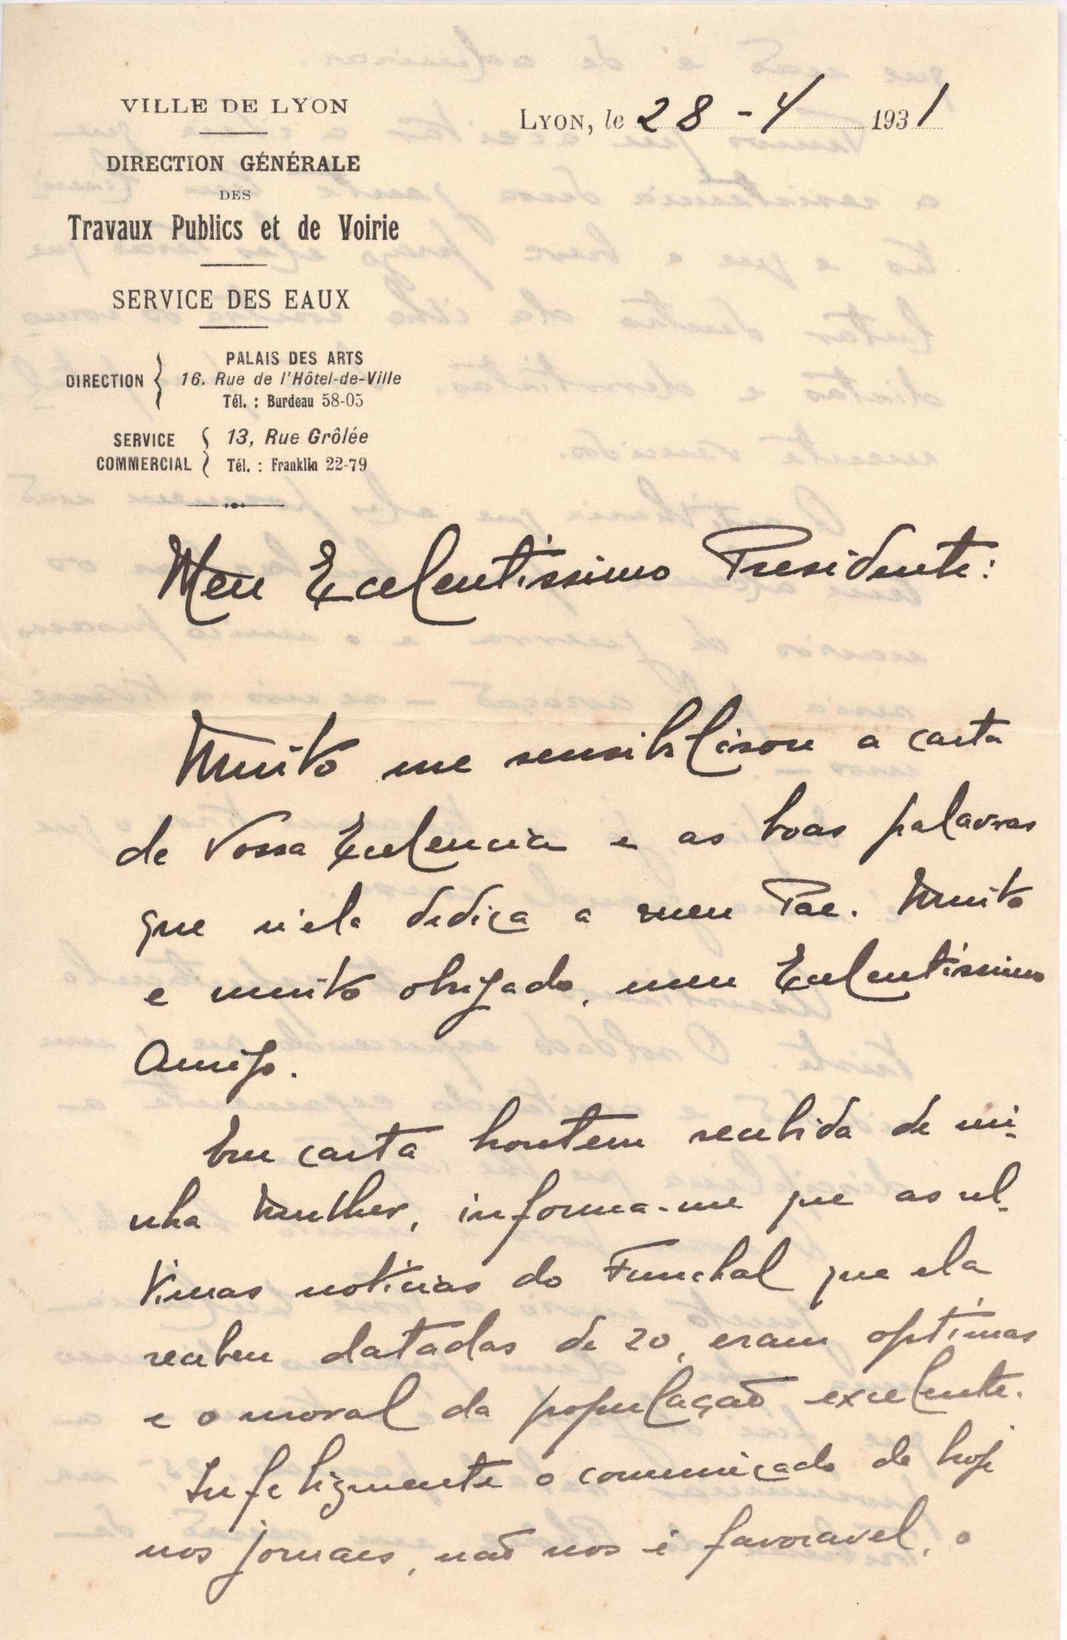 VILLE DE LYON
DIRECTION GÉNÉRALE
DES
Travaux Publics et de Voirie
SERVICE DES EAUX
DIRECTION
PALAIS DES ARTS
16. Rue de l'Hôtel-de-Ville
Tél. : Burdeau 58-05
SERVICE
COMMERCIAL
13, Rue Grôlée
Tél. : Franklin 22-79
LYON, le 28 - 4 1931
Meu Excelentissimo Presidente:
Muito me sensibilisou a carta
de Vossa Excelencia e as boas palavras
que n'ela dedica a meu Pae. Muito
e muito obrigado, meu Excelentissimo
Amigo.
Em carta hontem recebida de mi-
nha Mulher, informa-me que as ul-
timas noticias do Funchal que ela
recebeu datadas de 20, eram optimas
e o moral da população excelente.
Infelizmente o comunicado de hoje
nos jornaes, não nos é favoravel, o